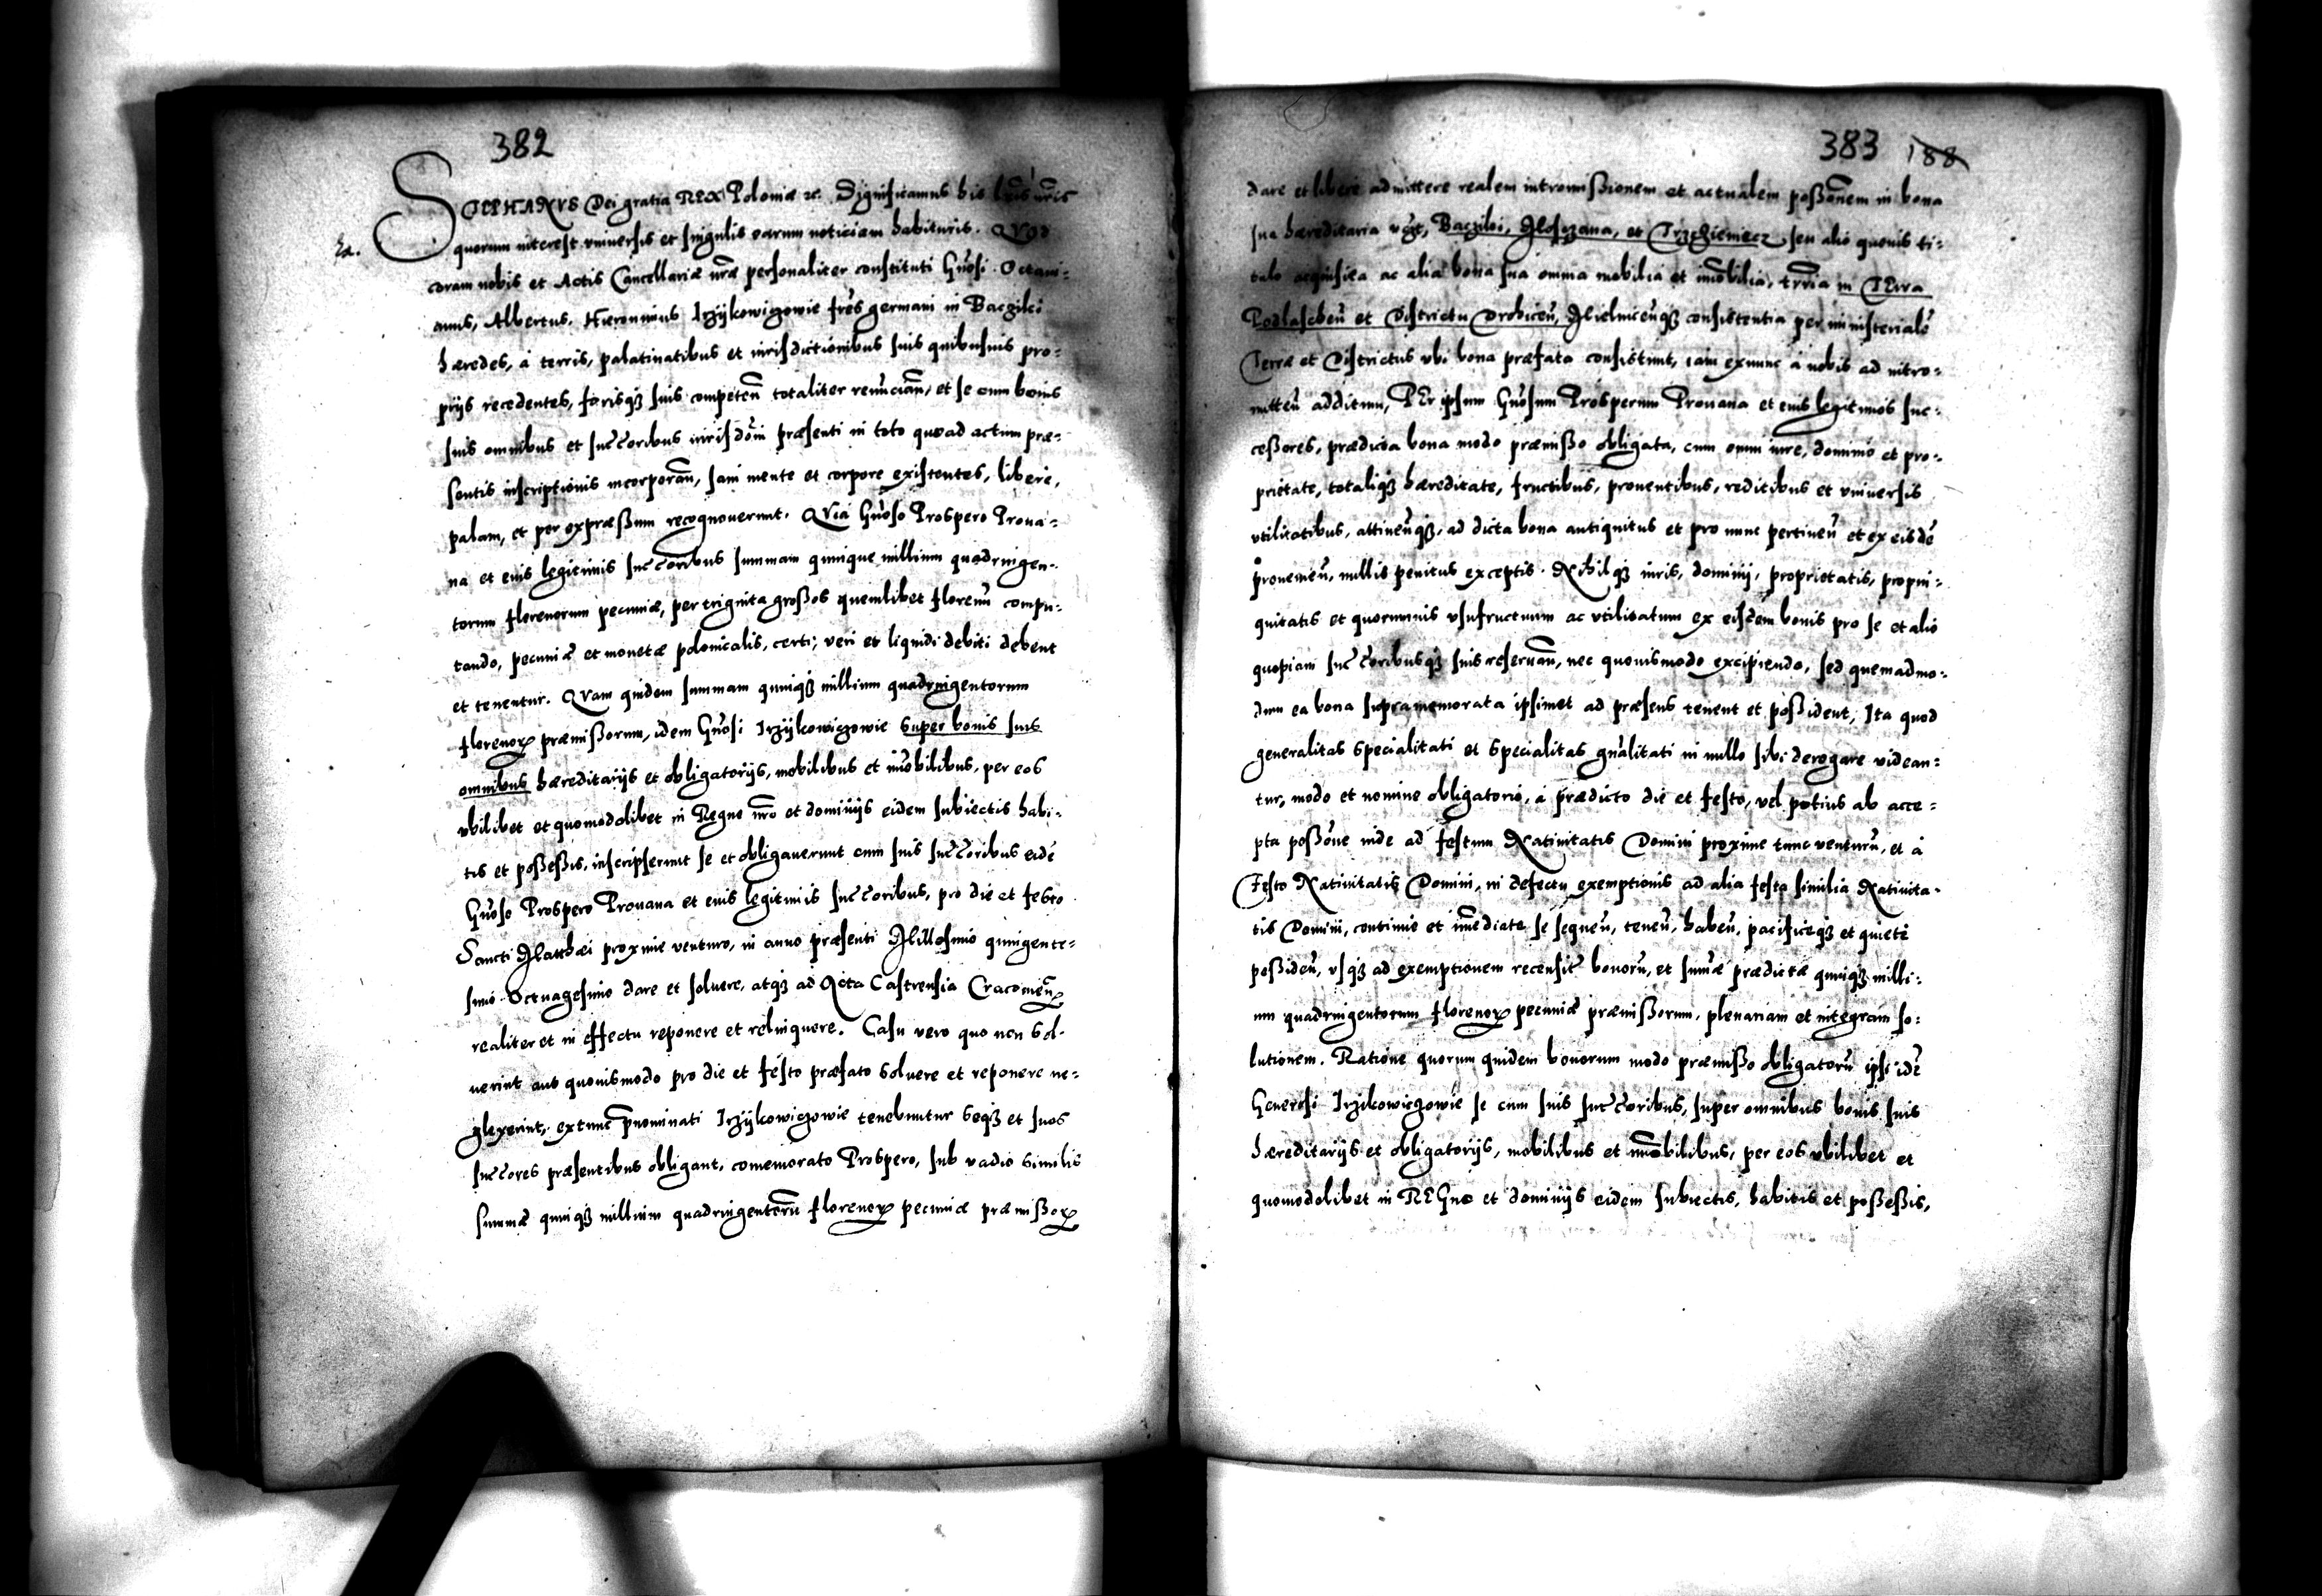 382
STEPHANVS Dei gratia REX Poloniæ &c. Significamus his lrīs nrīs
quorum interest vniuersis et singulis earum noticiam habituris. QVod
coram nobis et Actis Cancellariæ nrāe personaliter constituti Gnōsi Octaui-
anus, Albertus, Hieronimus Irzÿkowiczowie frēs germani in Baczÿki
hæredes, à terris, palatinatibus et iurisdictionibus suis quibusuis pro-
prijs recedentes, forisqȝ suis competeñ totaliter renuncian̄, et se cum bonis
suis omnibus et succōribus iurisdōni præsenti in toto quoad actum præ-
sentis inscriptionis incorporan̄, sani mente et corpore existentes, libere,
palam, et per expræssum recognouerunt. QVia Gnōso Prospero Proua-
na et eius legitimis succōribus summam quinque millium quadringen-
torum florenorum pecuniæ, per triginta grossos quemlibet florenū compu-
tando, pecuniæ et monetæ polonicalis, certi, veri et liquidi debiti debent
et tenentur. QVam quidem summam quinqȝ millium quadringentorum
florenoꝝ præmissorum, idem Gnōsi Irzÿkowiczowie super bonis suis
omnibus hæreditarijs et obligatorijs, mobilibus et im̄obilibus, per eos
vbilibet et quomodolibet in Regno nr̄o et dominijs eidem subiectis habi-
tis et possessis, inscripserunt se et obligauerunt cum suis succōribus eidē
Gnōso Prospero Prouana et eius legitimis succōribus, pro die et festo
Sancti Matthæi proxime venturo, in anno præsenti Millesimo quingente-
simo Octuagesimo dare et soluere, atqȝ ad Acta Castrensia Cracouieñ
realiter et in effectu reponere et relinquere. Casu vero quo non sol-
uerint aut quouismodo pro die et festo præfato soluere et reponere ne-
glexerint, extunc prænominati Irzÿkowiczowie tenebuntur seqȝ et suos
succōres præsentibus obligant, comemorato Prospero, sub vadio similis
summæ quinqȝ millium quadringentorū florenoꝝ pecuniæ præmissoꝝ
383 188
dare et libere admittere realem intromissionem et actualem possōnem in bona
sua hæreditaria vczt, Baczÿki, Moszczana, et Trzcziemecz, seu alio quouis ti-
tulo acquisita ac alia bona sua omnia mobilia et im̄obilia, in TErra
Podlascheñ et Districtu Drohiceñ, Mielniceñqȝ consistentia per ministerialē
Terræ et Districtus vbi bona præfata consistunt, iam exnunc à nobis ad intro-
mitteñ additum, PEr ipsum Gnōsum Prosperum Prouana et eius legitimos suc-
cessores, prædicta bona modo præmisso obligata, cum omni iure, dominio et pro-
prietate, totaliqȝ hæreditate, fructibus, prouentibus, reditibus et vniuersis
vtilitatibus, attineñqȝ, ad dicta bona antiquitus et pro nunc pertineñ et ex eisdē
prouenieñ, nullis penitus exceptis. Nihilqȝ iuris, dominij, proprietatis, propin-
quitatis et quorumuis vsufructuum ac vtilitatum ex eisdem bonis pro se et alio
quopiam succōribusqȝ suis reseruan̄, nec quouismodo excipiendo, sed quemadmo-
dum ea bona supramemorata ipsimet ad præsens tenent et possident, Ita quod
generalitas specialitati et specialitas gnālitati in nullo sibi derogare videan-
tur, modo et nomine obligatorio, à prædicto die et festo, vel potius ab acce-
pta possōne inde ad festum Natiuitatis Domini proxime tunc venturū, et à
Festo Natiuitatis Domini, in defectu exemptionis ad alia festa similia Natiuita-
tis Domini, continuo et im̄ediate se sequeñ, teneñ, habeñ, pacificeqȝ et quiete
possideñ, vsqȝ ad exemptionem recensitˢ bonorū, et sum̄æ prædictæ quinqȝ milli-
um quadringentorum florenoꝝ pecuniæ præmissorum, plenariam et integram so-
lutionem. Ratione quorum quidem bonorum modo præmisso obligatorū ipsi idē
Generosi Irzikowiczowie se cum suis succōribus, super omnibus bonis suis
hæreditarijs et obligatorijs, mobilibus et im̄obilibus, per eos vbilibet et
quomodolibet in REGno et dominijs eidem subiectis, habitis et possessis,